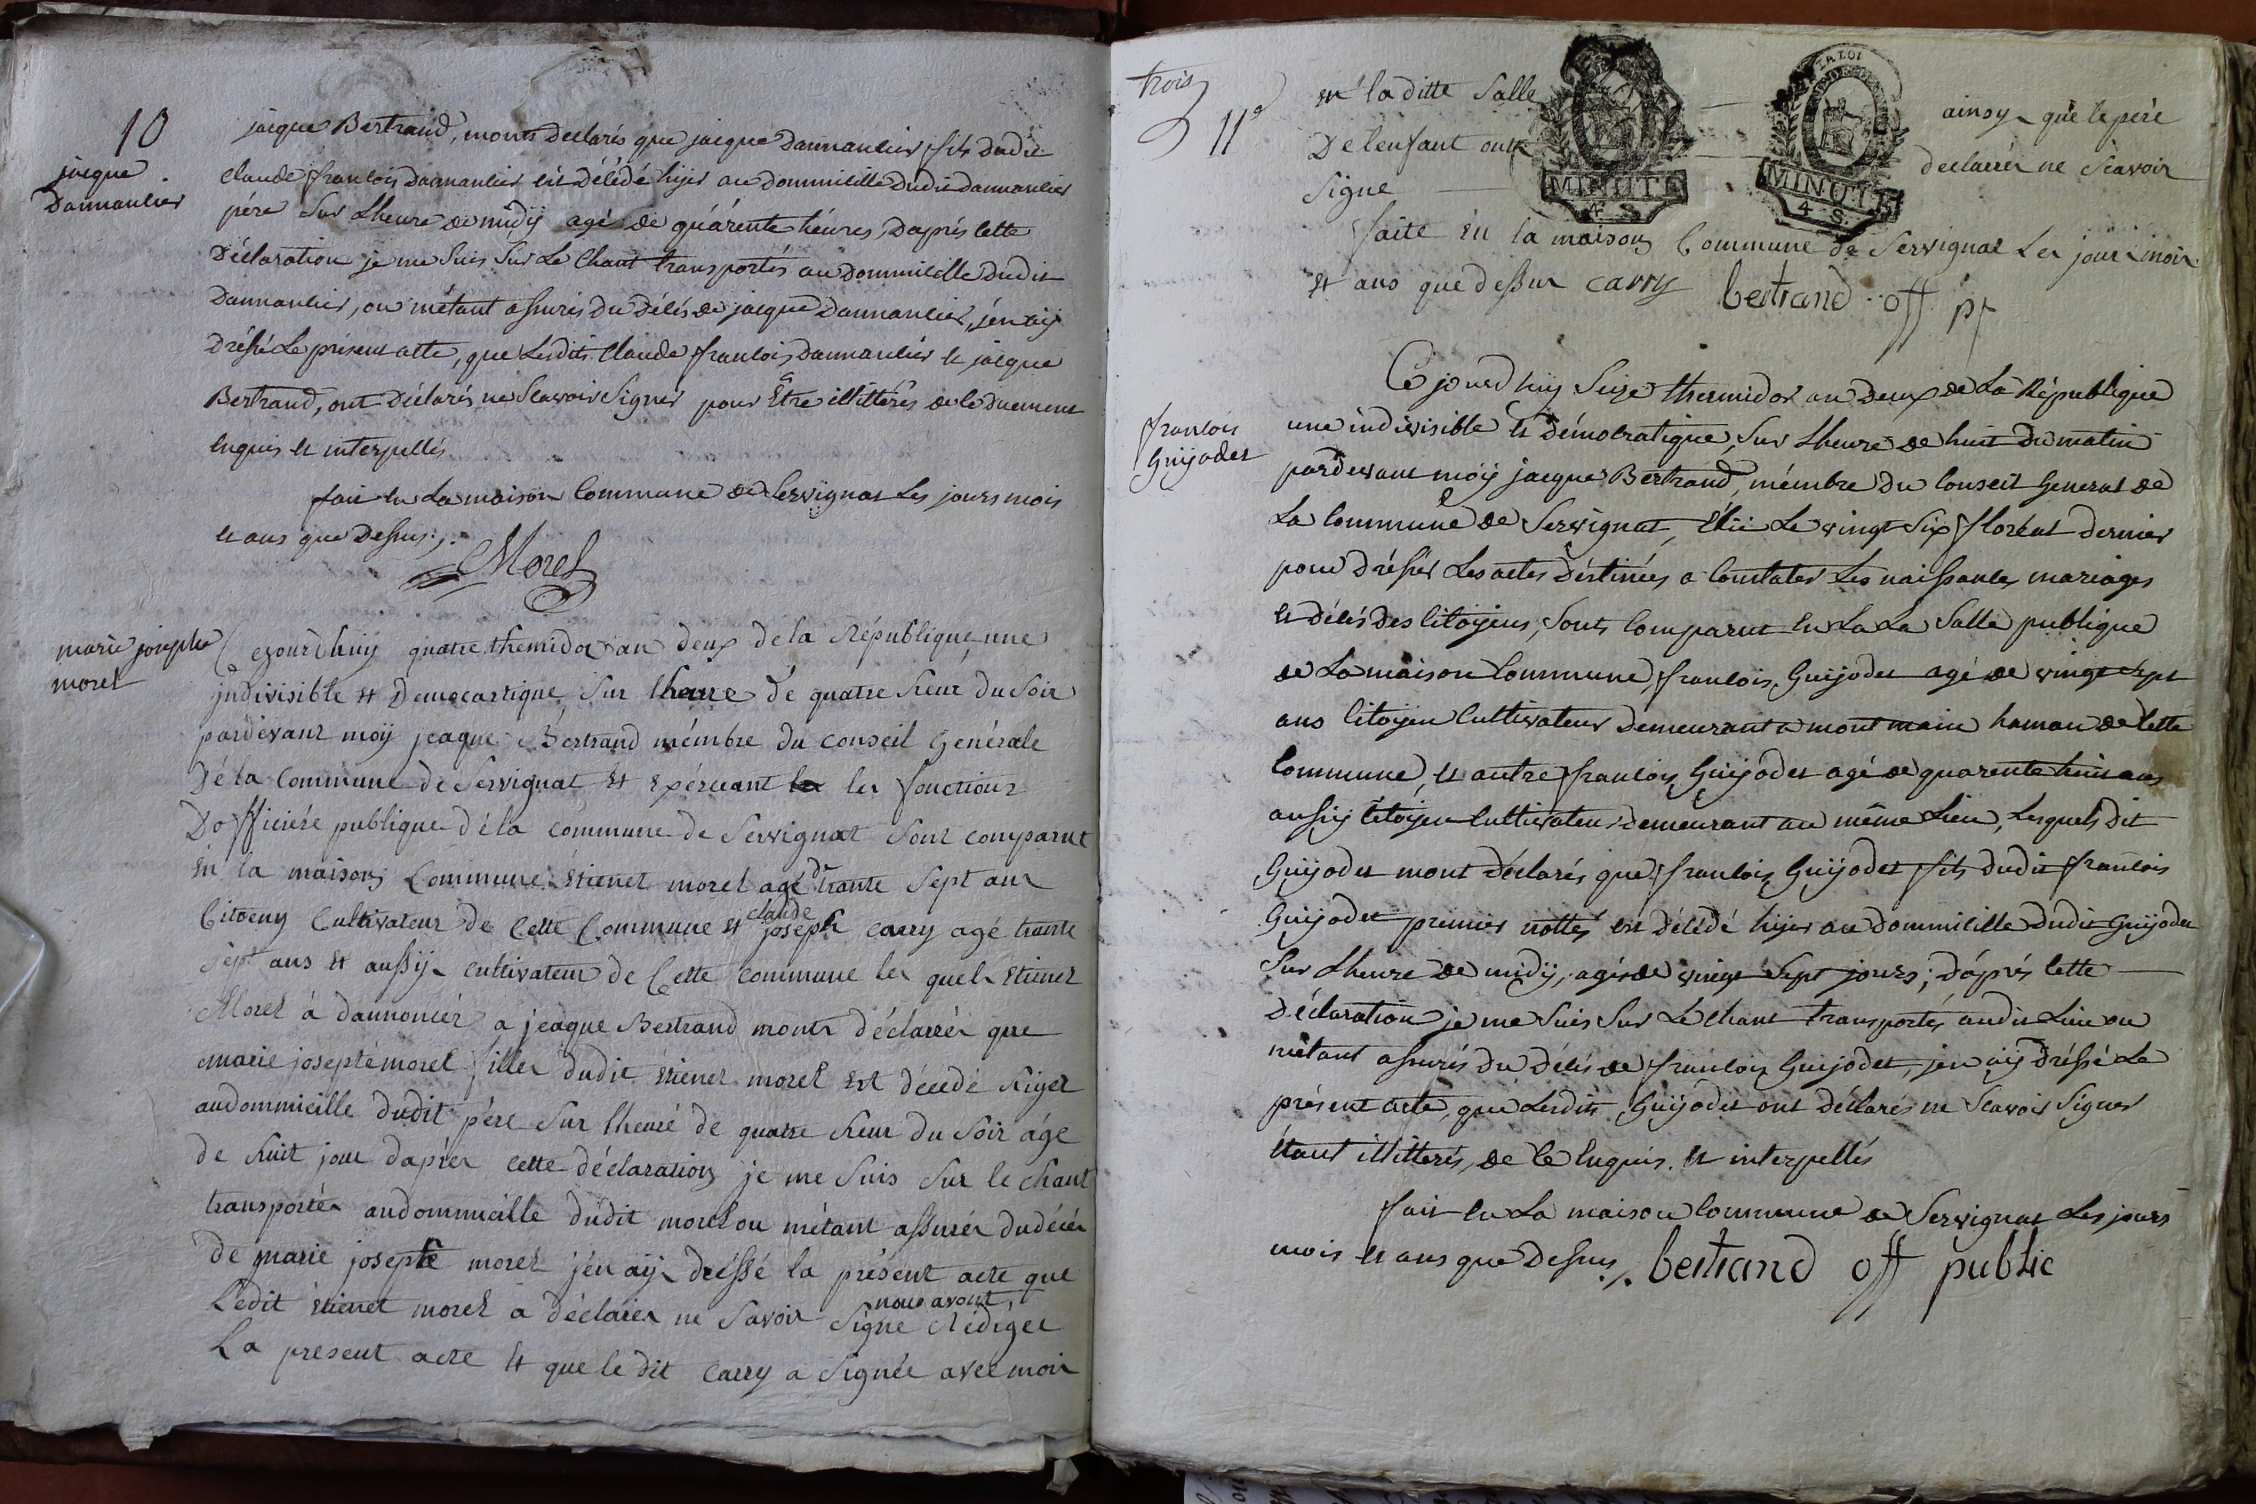 10
jacque
Dannancier
jacque Bertrand, monts declarés que jacque Dannancier fils dudit
Claude francois Dannancier est décédé hijer au dommicille dudit dannancier
pére sur Lheure de midÿ agé de quárénte héures, daprés cette
Déclaration je me suis sur Le Chant transportés au dommicille dudit
Dannancier, ou métant assurés du décés de jacque Dannancier, j'en aÿ
Dréssé Le présent acte, que Lesdits Claude francois Dannancier et jacque
Bertrand, ont déclarés ne Scavoir Signér pour Etre illittérés de ce duement
enquis et interpellés
fait en La maison Commune de Servignat Les jours mois
et ans que Dessus ;.
Morel
marie josephe
morel
Cejourdhuÿ quatre themidor an deux de la République une
indivisible et Democartique sur lheure dé quatre heur du Soir
pardévant moÿ jeaque Bertrand mémbre du conseil Genérale
Dé la Commune de Servignat et expércant les fonctions
Dofficiére publique dé la commune de Servignat Sont comparut
En la maison Commune Etienet morel agé de trante Sept ans
Citoeny Cultivateur de Cette Commune et claude joseph carry agé trante
sept ans et aussÿ cultivateur de Cette commune les quels Etienet
Morel à dannoncér a jeaque Bertrand monts déclarrér que
marie josepté morel filles dudit Etienet morel est décedé hiyer
audommicille dudit pére sur lheuré de quatre heur du Soir áge
de huit jour daprés cette déclaration je me Suis Sur le chant
transportér audommicille dudit morel ou métant assurér dudécér
de marie josephe morel jén aÿ dréssé la présent acte que
Ledit Etienet morel a déclarer ne Savoir Signé nous avont Rédiger
La present acte et que le dit carry a Signée avec moi
trois
11e
en laditte Salle ainsy que le pére
De lenfant ont declarrér ne Scavoir
Signe
LA LOI
MINUTE
4 S.
MINUTE
4 S.
faite En la maison Commune de Servignat Les jour mois
et ans que dessur carry bertrand off p
francois
Guijodet
Ce jourdhuy Seize thermidor an deux de La République
une indivisible et démocratique, Sur Lheure de huit du matin
pardevant moÿ jacque Bertrand, mémbre du Conseil General de
La Commune de Servignat, élü Le vingt Six floréal dernier
pour dréssér Les actes déstinées a Constater Les naissances mariages
et décés des Citoÿens, Sonts Comparut en La La Salle publique
de La maison Commune, francois Guijodet agé de vingt Sept
ans Citoÿen Cultivateur demeurant a mont main hamau de Cette
Commune, et autre francois Guijodet agé de quarente huit ans
aussÿ Citoÿen Cultivateur demeurant au même Lieu, Lesquels dit
Guijodet mont déclarés que francois Guijodet fils dudit francois
Guijodet premier nottés est décédé hijer au dommicille dudit Guijodet
Sur Lheure de midÿ, agés de vingt Sept jours ; daprés cette
Déclaration je me Suis Sur Le Chant transportés audit Lieu ou
métant assurés du décés de francois Guijodet, jen aÿ dréssé Le
présent acte, que Lesdits Guijodet ont déclarés ne Scavoir Signer
étant illitterés, de ce enquis et interpellés
fait en La maison Commune de Servignat Les jours
mois et ans que Dessus ;. bertrand off public